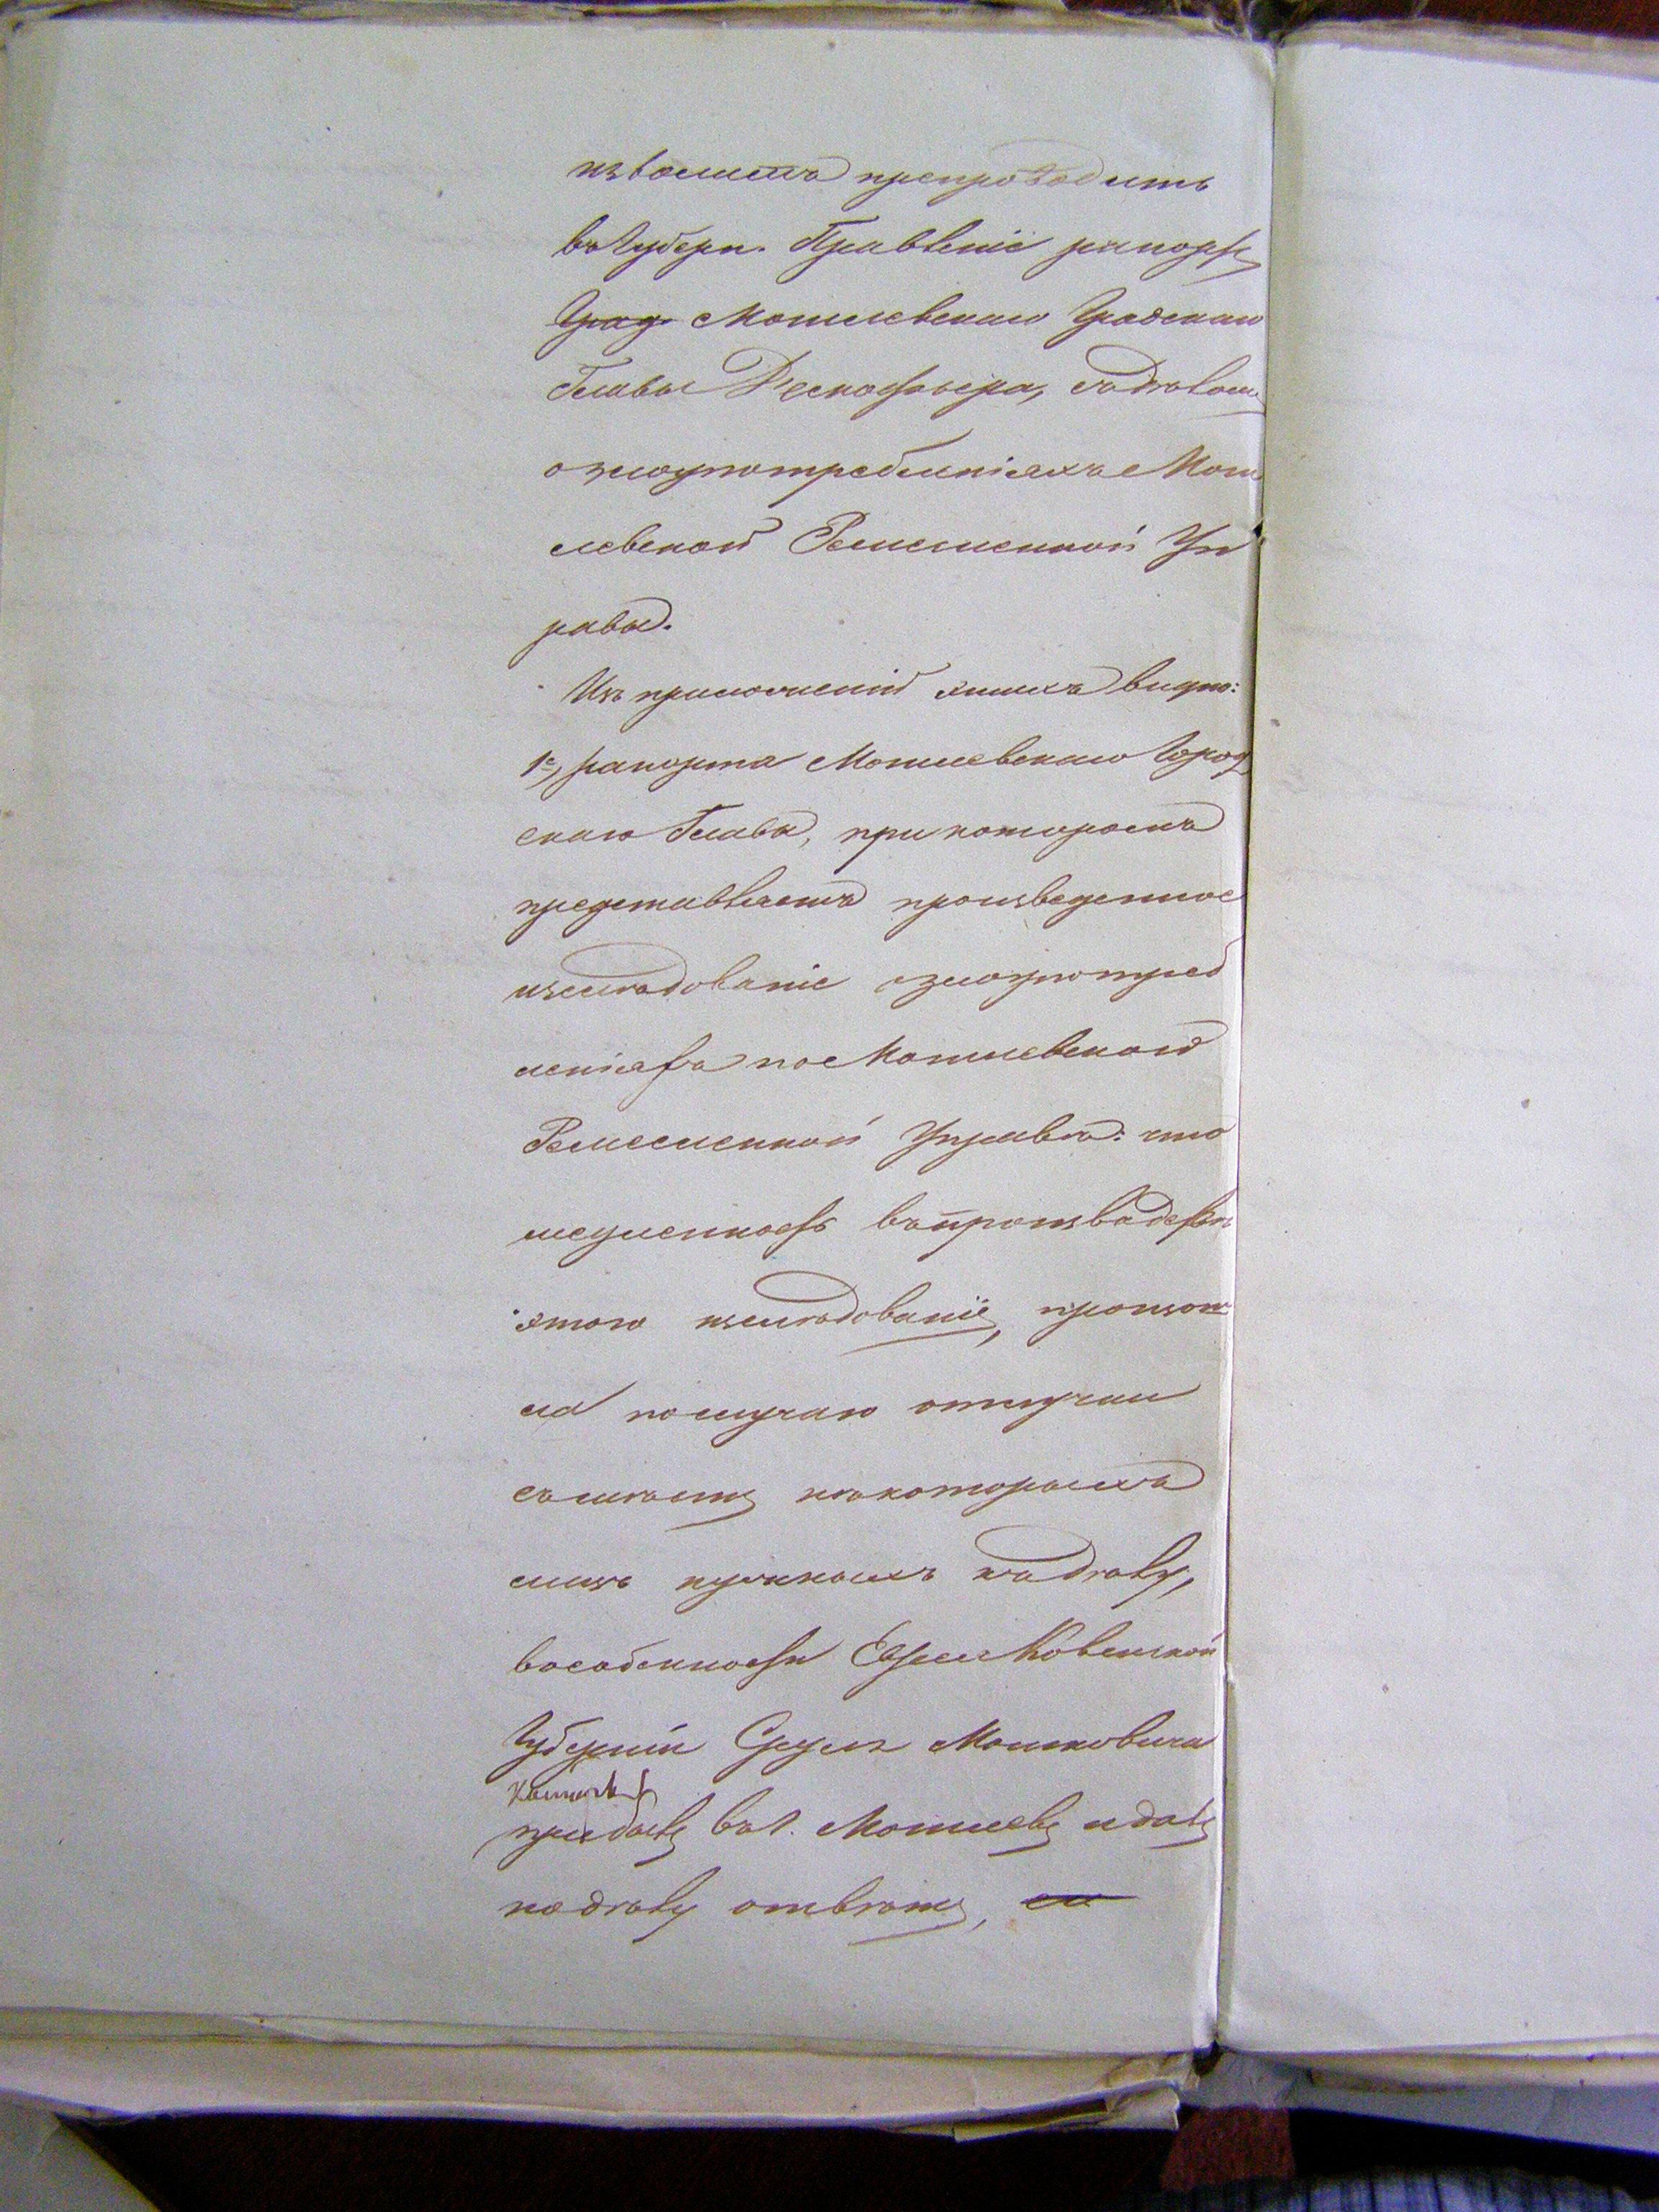 изволила препроводить
въ Губерн. Правленіе рапортъ
Град Могилевскаго Градскаго
Главы съ дѣломъ
о злоупотребленіяхъ Моги
левской Ремесленной Уп
равы.
Изъ приложеній этихъ видно:
1е, рапорта Могилевскаго Город
скаго Главы, при которомъ
представляетъ произведенное
изслѣдованіе о злоупотреб
леніяхъ по Могилевской
Ремесленной Управѣ: что
медленность въ производствѣ
этого изслѣдованія, произош
ла по случаю отлучки
съ мѣстъ нѣкоторыхъ
лицъ нужныхъ къ дѣлу,
въ особенности Еврея Ковенской
Губерніи Мошковича
прибывъ въ г. Могилевъ и давъ
по дѣлу отвѣтъ,